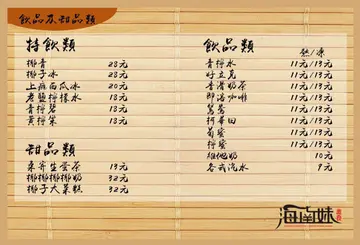 飲品及甜品類
特飲類
椰青 28元
椰子冰 28元
上麻西瓜冰 20元
老鹽檸檬水 18元
青檸茗 18元
黃檸茶 18元
甜品類
桑寄生蛋茶 19元
椰椰椰椰奶 32元
椰子大菜糕 32元
飲品類
熱/凍
青檸水 11元/13元
好立克 11元/13元
香滑奶茶 11元/13元
即溶咖啡 11元/13元
鴛鴦 11元/13元
柯華田 11元/13元
菊蜜 11元/13元
檸蜜 11元/13元
維他奶 10元
各式汽水 9元
海南妹